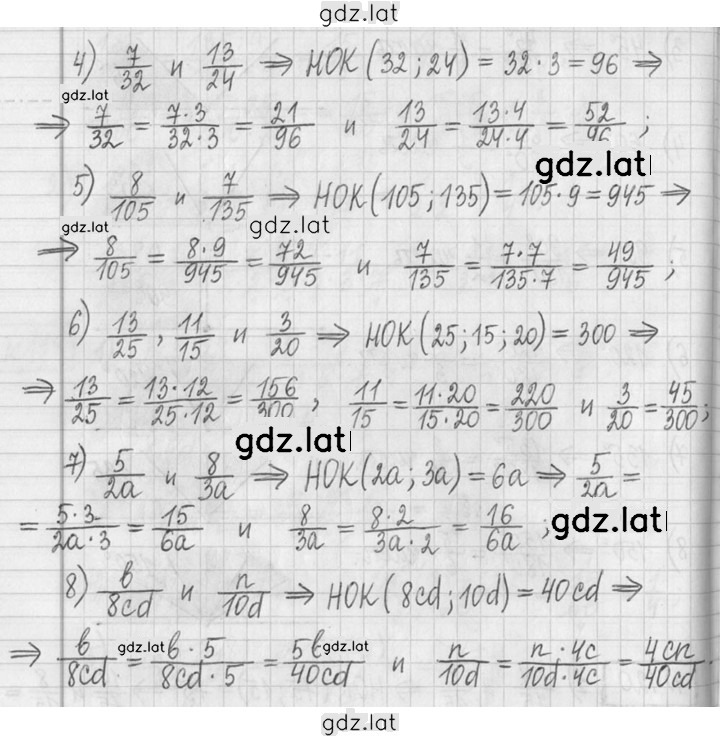 gdz.lat
4) 7/32 и 13/24 ⇒ НОК(32; 24) = 32·3 = 96 ⇒
gdz.lat
⇒ 7/32 = 7·3/32·3 = 21/96 и 13/24 = 13·4/24·4 = 52/96 ;
gdz.lat
5) 8/105 и 7/135 ⇒ НОК(105; 135) = 105·9 = 945 ⇒
gdz.lat gdz.lat
⇒ 8/105 = 8·9/945 = 72/945 и 7/135 = 7·7/135·7 = 49/945 ;
6) 13/25 , 11/15 и 3/20 ⇒ НОК(25; 15; 20) = 300 ⇒
⇒ 13/25 = 13·12/25·12 = 156/300 , 11/15 = 11·20/15·20 = 220/300 и 3/20 = 45/300 ;
gdz.lat
7) 5/2a и 8/3a ⇒ НОК(2a; 3a) = 6a ⇒ 5/2a =
= 5·3/2a·3 = 15/6a и 8/3a = 8·2/3a·2 = 16/6a ;
gdz.lat
8) b/8cd и n/10d ⇒ НОК(8cd; 10d) = 40cd ⇒
gdz.lat gdz.lat
⇒ b/8cd = b·5/8cd·5 = 5b/40cd и n/10d = n·4c/10d·4c = 4cn/40cd .
gdz.lat